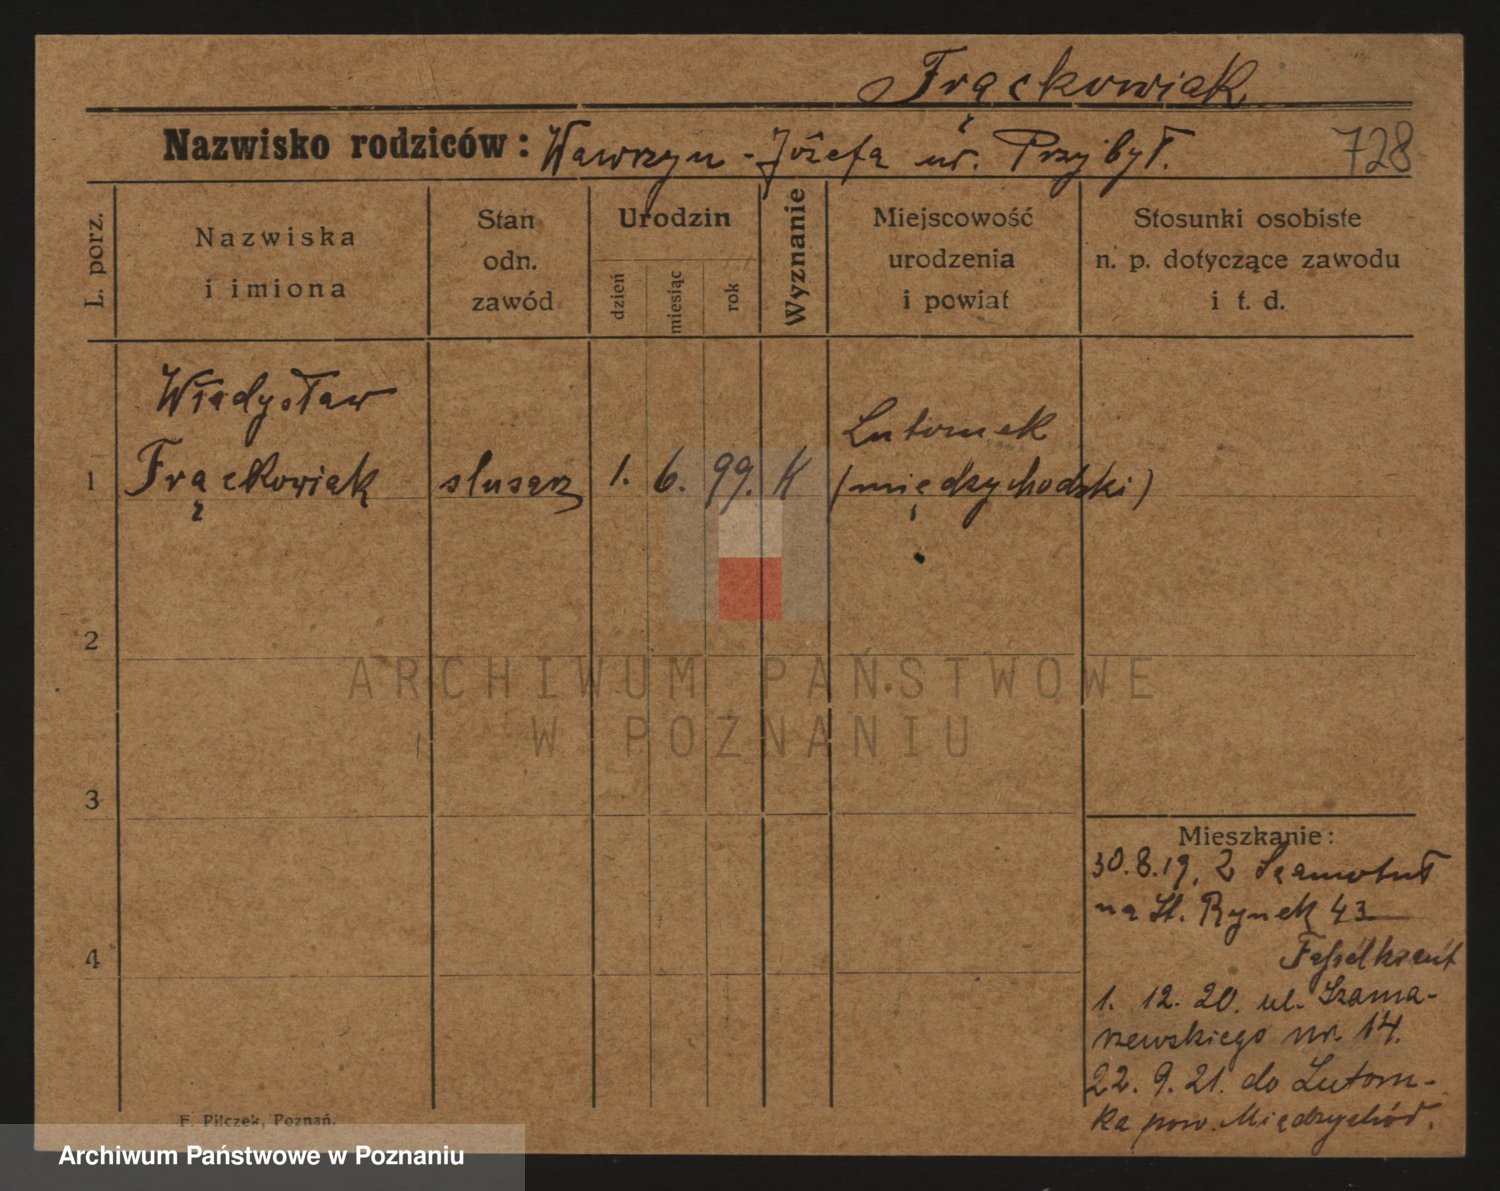 Frąckowiak
Nazwisko rodziców: Wawrzyn - Józefa ur. Przybył.
728
L. porz.
Nazwiska
i imiona
Stan
odn.
zawód
Urodzin
dzień
miesiąc
rok
Wyznanie
Miejscowość
urodzenia
i powiat
Stosunki osobiste
n. p. dotyczące zawodu
i t. d.
1
Władysław
Frąckowiak
slusarz
1.
6.
99.
K
Lutomek
(międzychodzki)
2
3
4
ARCHIWUM PAŃSTWOWE
W POZNANIU
Mieszkanie:
30.8.19. z Szamotuł
na St. Rynek 43
1. 12. 20. ul. Szama-
rzewskiego nr. 14.
22. 9. 21. do Lutom-
ka pow. Międzychód.
F. Pilczek, Poznań.
Archiwum Państwowe w Poznaniu